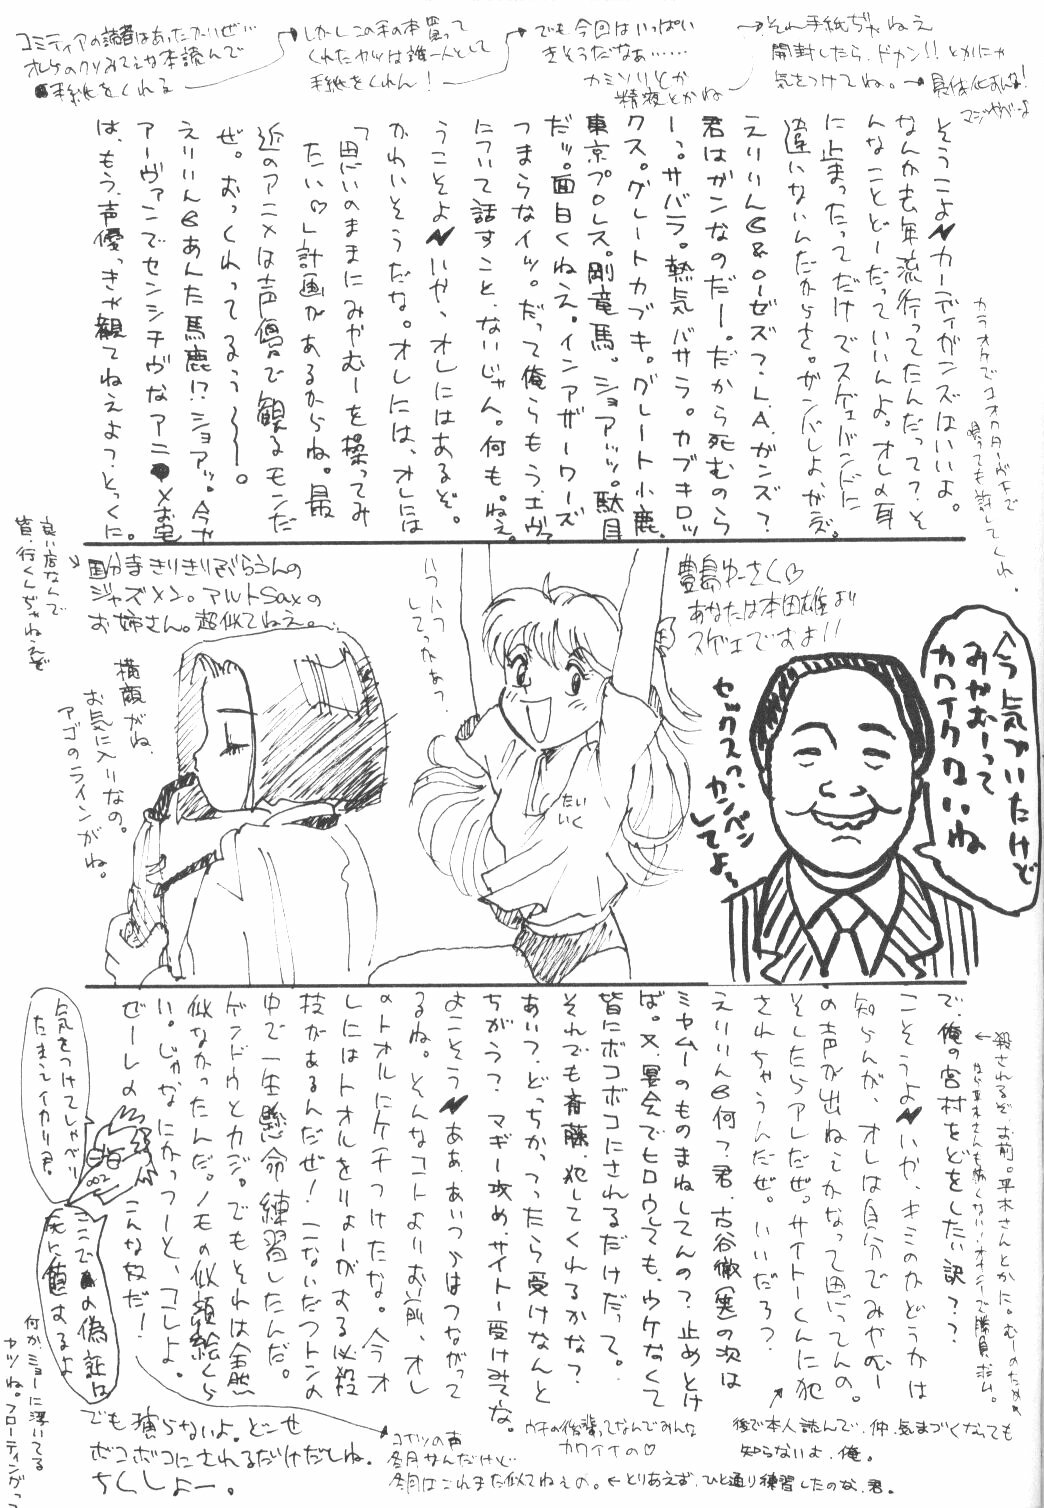 コミティアの読者はあったかいぜ…
オレらのクソみてえな本読んで
手紙をくれる
しかしこの手の本買って
くれたヤツは誰一人として
手紙をくれん!
でも今回はいっぱい
きそうだなぁ……
カミソリとか
精液とかね
それ手紙ぢゃねえ
開封したら、ドカン!!とかにゃ
気をつけてね。→具体化すんな!
マジやべーよ
そうこよカーディガンズはいいよ。
なんか去年流行ってたんだって?そ
んなことどーだっていいんよ。オレの耳
に止まったってだけでスゲェバンドに
違いないんだからさ。ガンバしよ、がぷ。
えりりん&ローゼズ?L.A.ガンズ?
君はガンなのだー。だから死むのら
ーっ。サバラ。熱気バサラ。カブキロッ
クス。グレートカブキ。グレート小鹿。
東京プロレス。剛竜馬。ショアッッ。駄目
だッ。面白くねえ。インアザーワーズ
つまらなイッ。だって俺らもう、エヴァ
について話すこと、ないじゃん。何も。ねえ。
うこそよいや、オレにはあるぞ。
かわいそうだな。オレには、オレには
「思いのままにみやむーを操ってみ
たい♡」計画があるからね。最
近のアニメは声優で観るモンだ
ぜ。おっくれってるぅ〜〜。
えりりんあんた馬鹿!?ショアッ。今や
アーヴァンでセンシチヴなアニメお宅
は、もう、声優っきゃ観てねえよっ、とっくに。
カラオケで
唄っても許してくれ。
良い店なんで
皆、行くんぢゃねえぞ
国分寺きりきりぶらうんの
ジャズメン。アルトSaxの
お姉さん。超似てねえ。
横顔がね、
お気に入りなの。
アゴのラインがね。
いつハつ
してっかぁっ
たいいく
豊島ゆーさく♡
あなたは本田雄より
スゲェですよ!!
セックスっ、カンベン
してよ〜
今気づいたけど
みやむーって
カワイクないね
で、俺の宮村をどをしたい訳??
こそうよいや、キミのかどうかは
知らんが、オレは自分でみやむー
の声が出ねえかなって思ってんの。
そしたらアレだぜ。サイトーくんに犯
されちゃうんだぜ。いいだろ?
えりりん何?君、古谷徹(裏)の次は
ミヤムーのものまねしてんの?止めとけ
ば。又、宴会でヒロウしても、ウケなくて
皆にボコボコにされるだけだって。
それでも斎藤、犯してくれるかな?
あいつ、どっちかっつったら受けなんと
ちがう?マギー攻め、サイトー受けみてな。
よこそうああ、あいつらはつながって
るね。そんなコトよりお前、オレ
のトオルにケチつけたな。今うオ
レにはトオルをりょーがする必殺
技があるんだぜ!二ないだつトンの
中で一生懸命練習したんだ。
ゲンドウとカジ。でもそれは全然
似なかったんだ。ノモの似顔絵くら
い。じゃなにかっつーと、コレしよ。
ぜーレの
こんな奴だー!
殺されるぞ、お前。平木さんとかに。むーのためめ
気をつけてしゃべり
たまえイカリ君。
ここでの偽証は
死に値するよ
何かミョーに浮いてる
ヤツね。フローティングっつ
でも演らないよ。どーせ
ボコボコにされるだけだしね。
ちくしょー。
コイツの声
冬月さんだけど
冬月はこれまた似てねえの。←とりあえず、ひと通り練習したのな、君。
ウチの後輩ってなんでみんな
カワイイの♡
後で本人読んで、仲、気まづくなっても
知らないよ、俺。